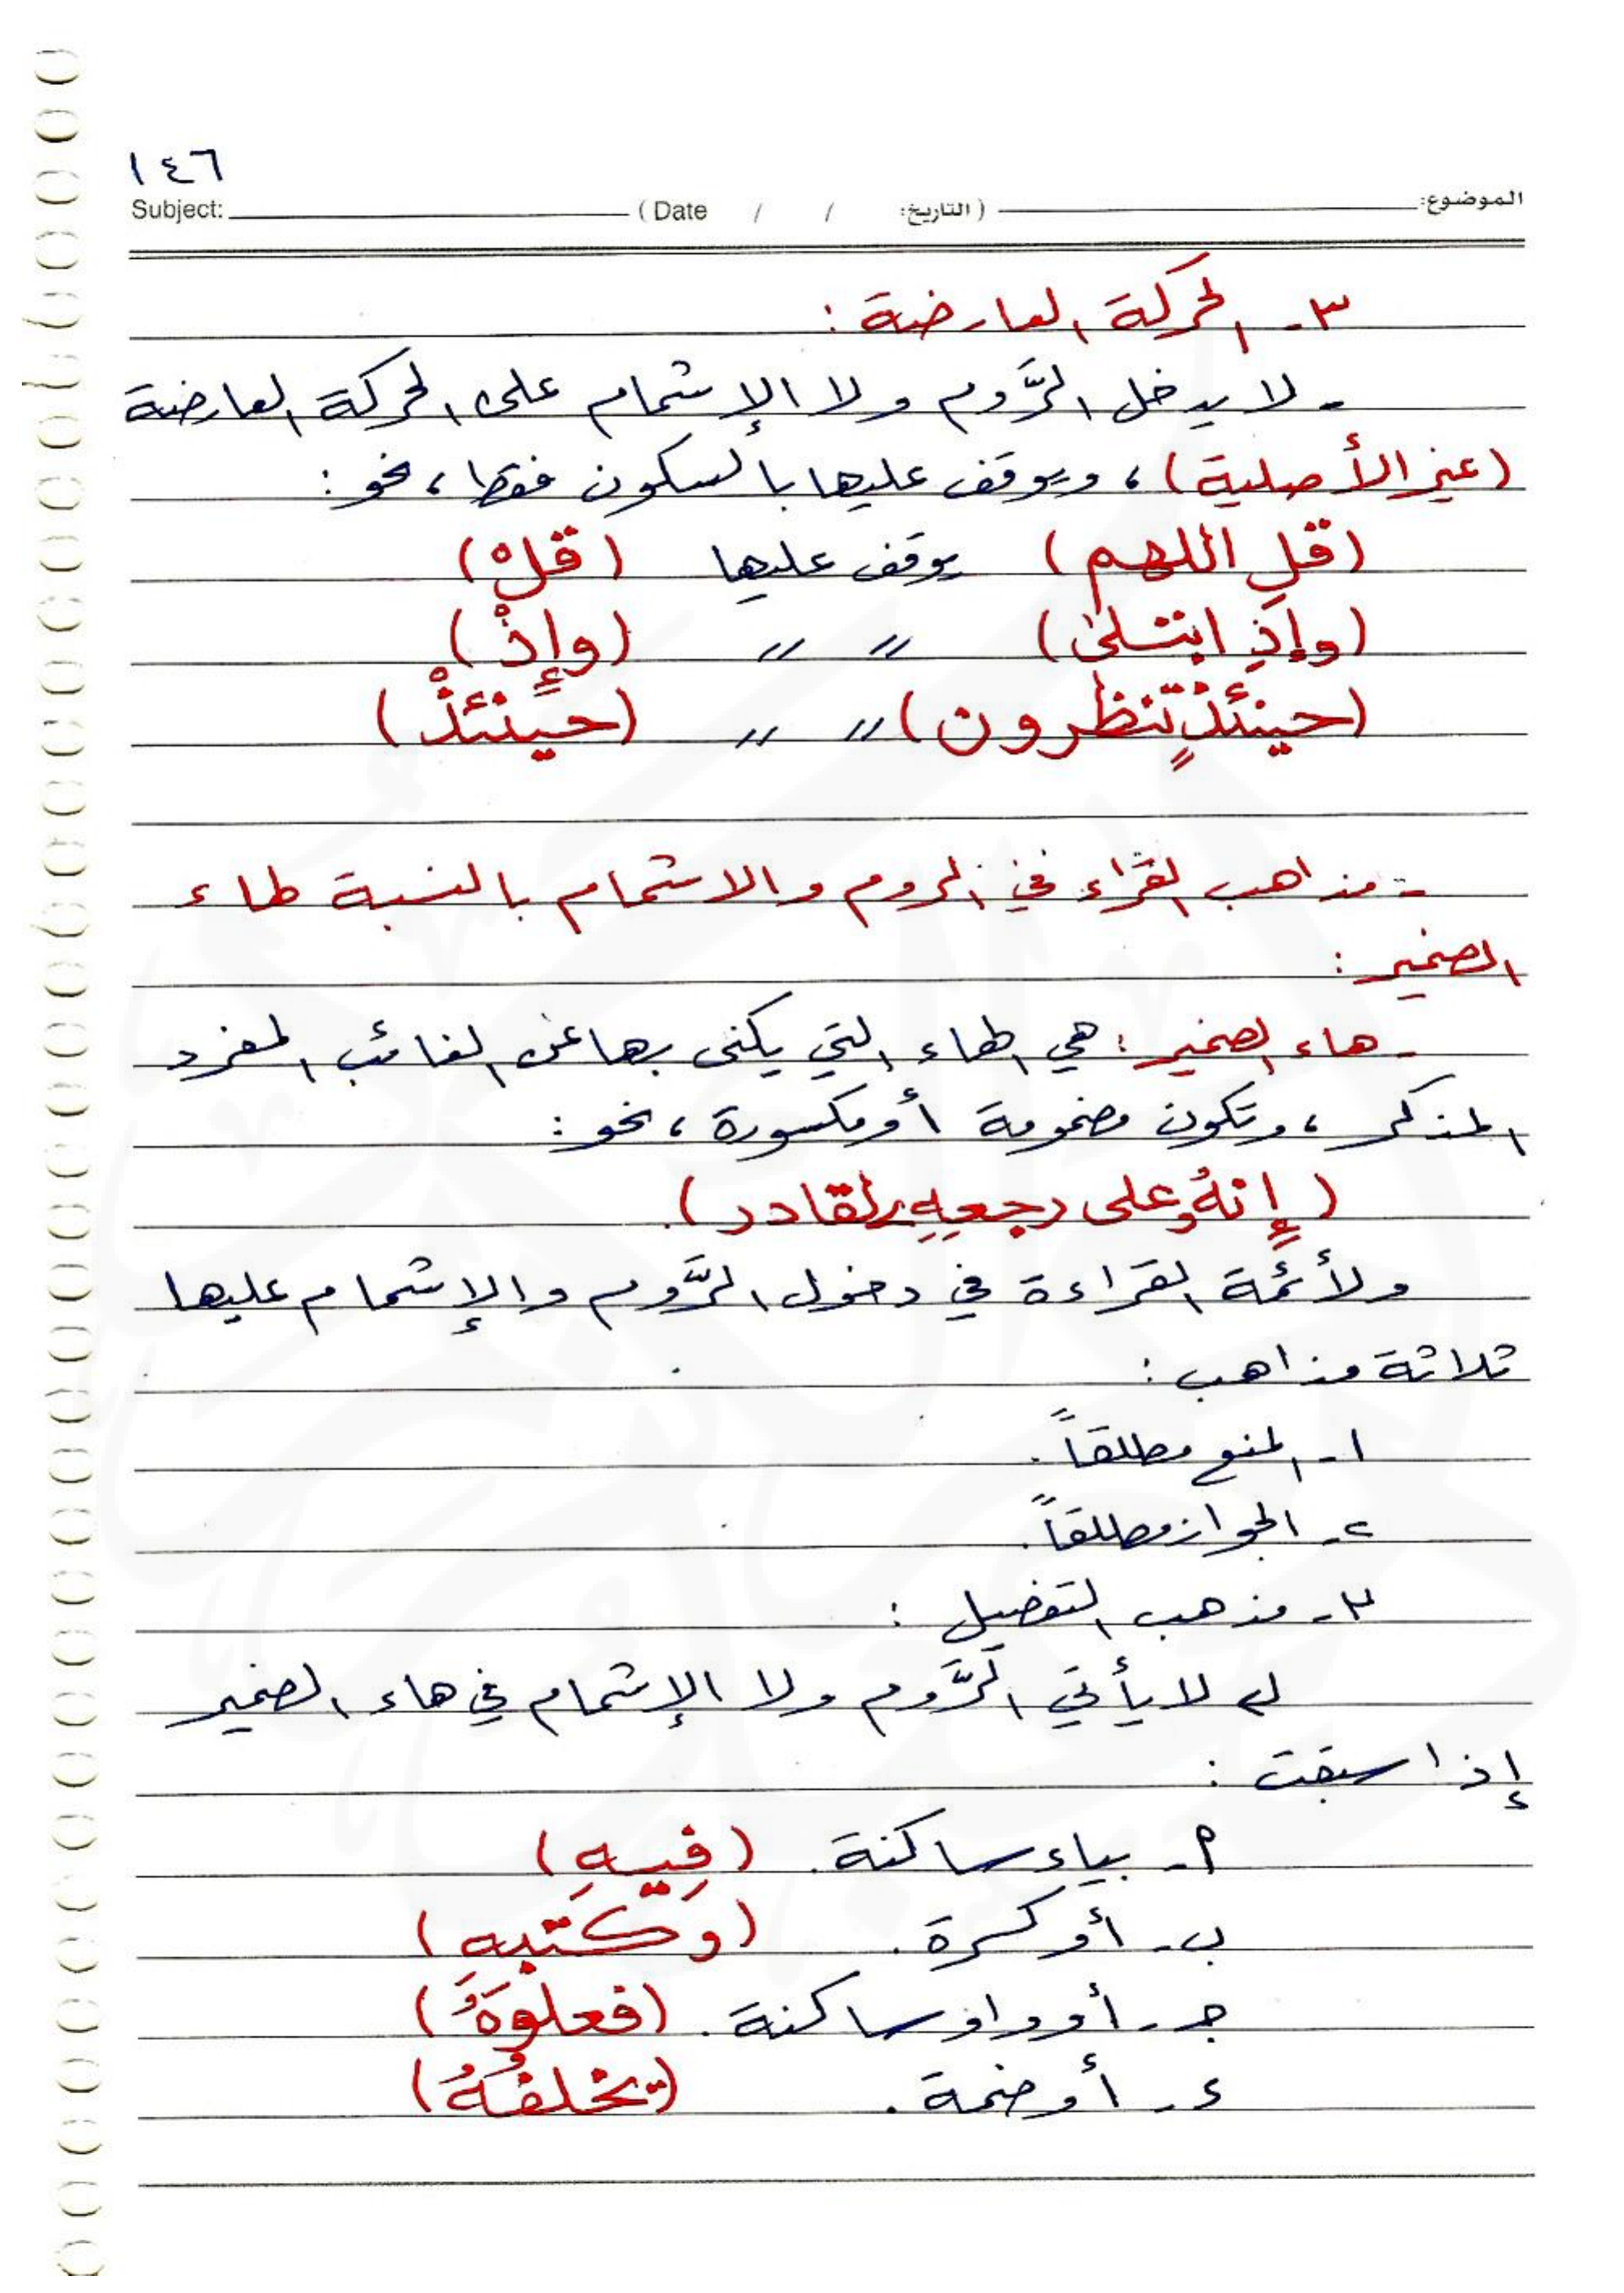 ١٤٦
الموضوع: (التاريخ: / / Date ) Subject:
٣ - الحركة العارضة :
- لا يدخل الرَّوم ولا الإشمام على الحركة العارضة
(غير الأصلية) ، ويوقف عليها بالسكون فقط ، نحو :
(قلِ اللهم) يوقف عليها (قلْ)
(وإذِ ابتلىٰ) " " (وإذْ)
(حينئذٍ تنظرون) " " (حينئذْ)
- مذاهب القرَّاء في الروم والاشمام بالنسبة لهاء
الضمير :
- هاء الضمير : هي الهاء التي يكنى بها عن الغائب المفرد
المذكر ، وتكون مضمومة أو مكسورة ، نحو :
(إِنهُۥ على رجعهِۦ لقادر).
ولأئمَّة القراءة في دخول الرَّوم والإشمام عليها
ثلاثة مذاهب :
١ - المنع مطلقاً.
٢ - الجواز مطلقاً.
٣ - مذهب التفصيل :
لا يأتي الرَّوم ولا الإشمام في هاء الضمير
إذا سبقت :
أ - بياء ساكنة. (فِيهِ)
ب - أو كسرة. (وكتبِهِ)
جـ - أو واو ساكنة. (فعلوهُ)
د - أو ضمة. (تخلفُهُ)